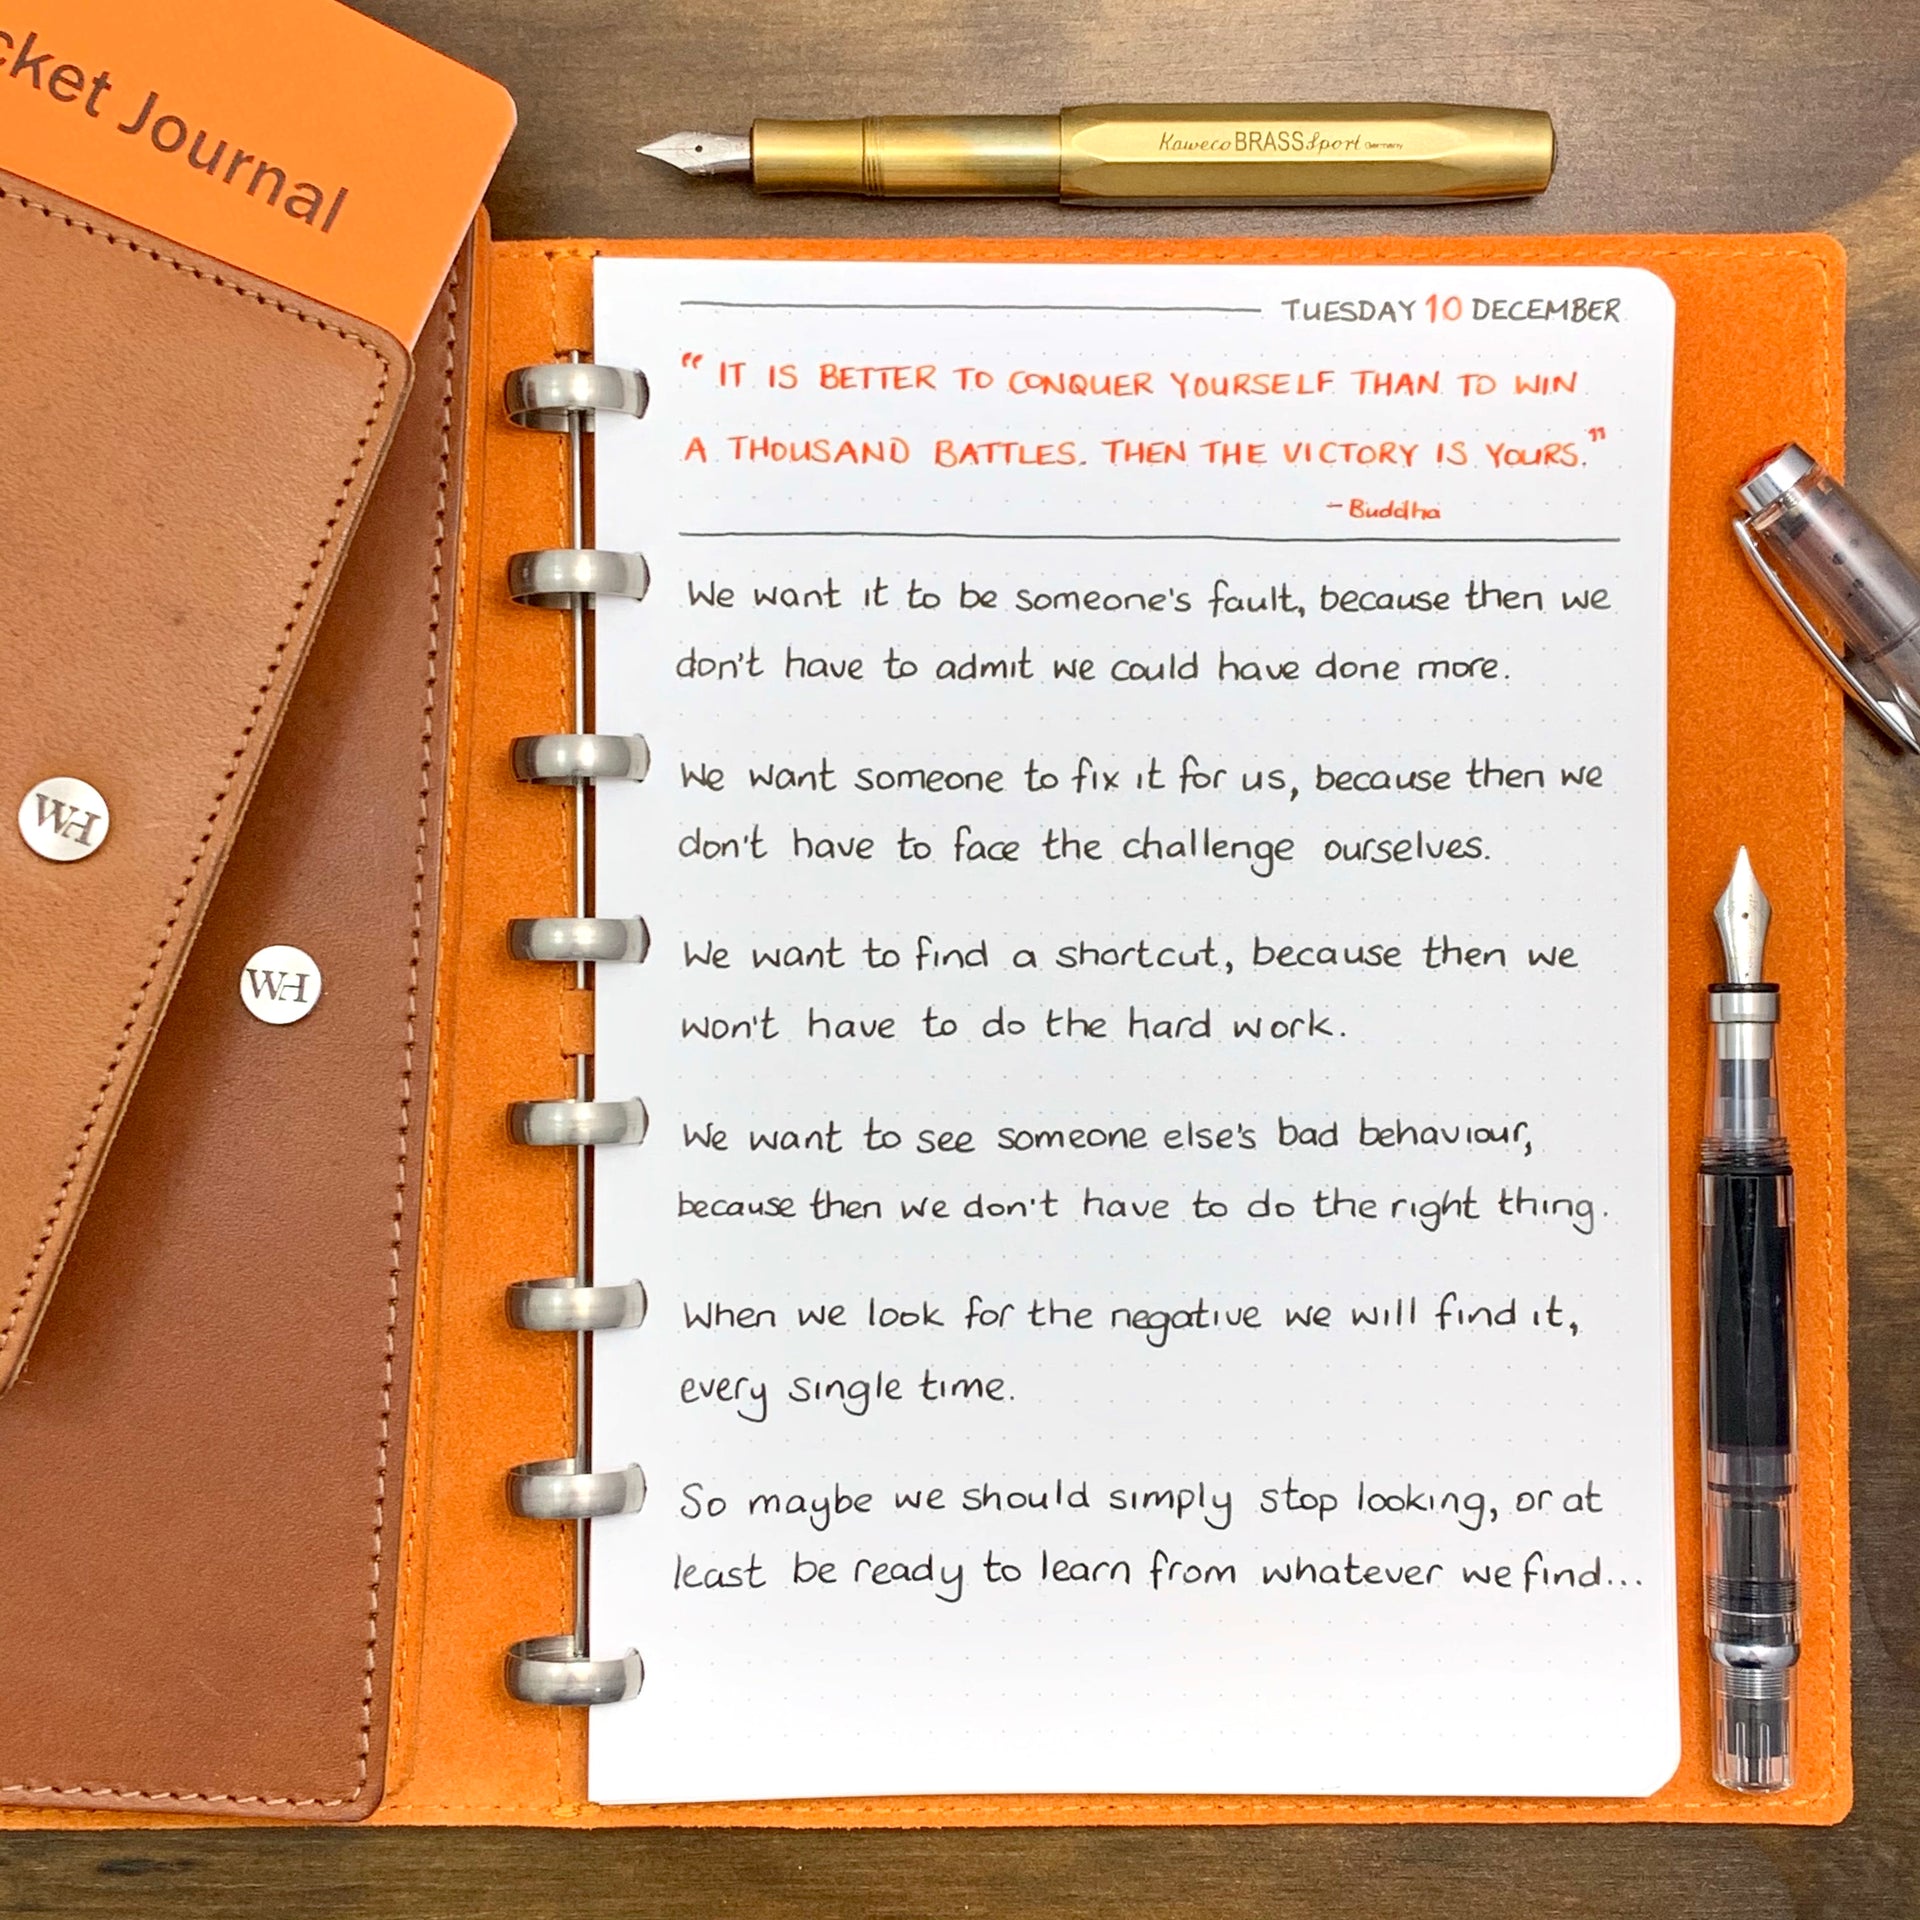 cket Journal
Kaweco BRASS Sport Germany
WH
WH
TUESDAY 10 DECEMBER
“IT IS BETTER TO CONQUER YOURSELF THAN TO WIN
A THOUSAND BATTLES. THEN THE VICTORY IS YOURS.”
- Buddha
We want it to be someone's fault, because then we
don't have to admit we could have done more.
We want someone to fix it for us, because then we
don't have to face the challenge ourselves.
We want to find a shortcut, because then we
won't have to do the hard work.
We want to see someone else's bad behaviour,
because then we don't have to do the right thing.
When we look for the negative we will find it,
every single time.
So maybe we should simply stop looking, or at
least be ready to learn from whatever we find...